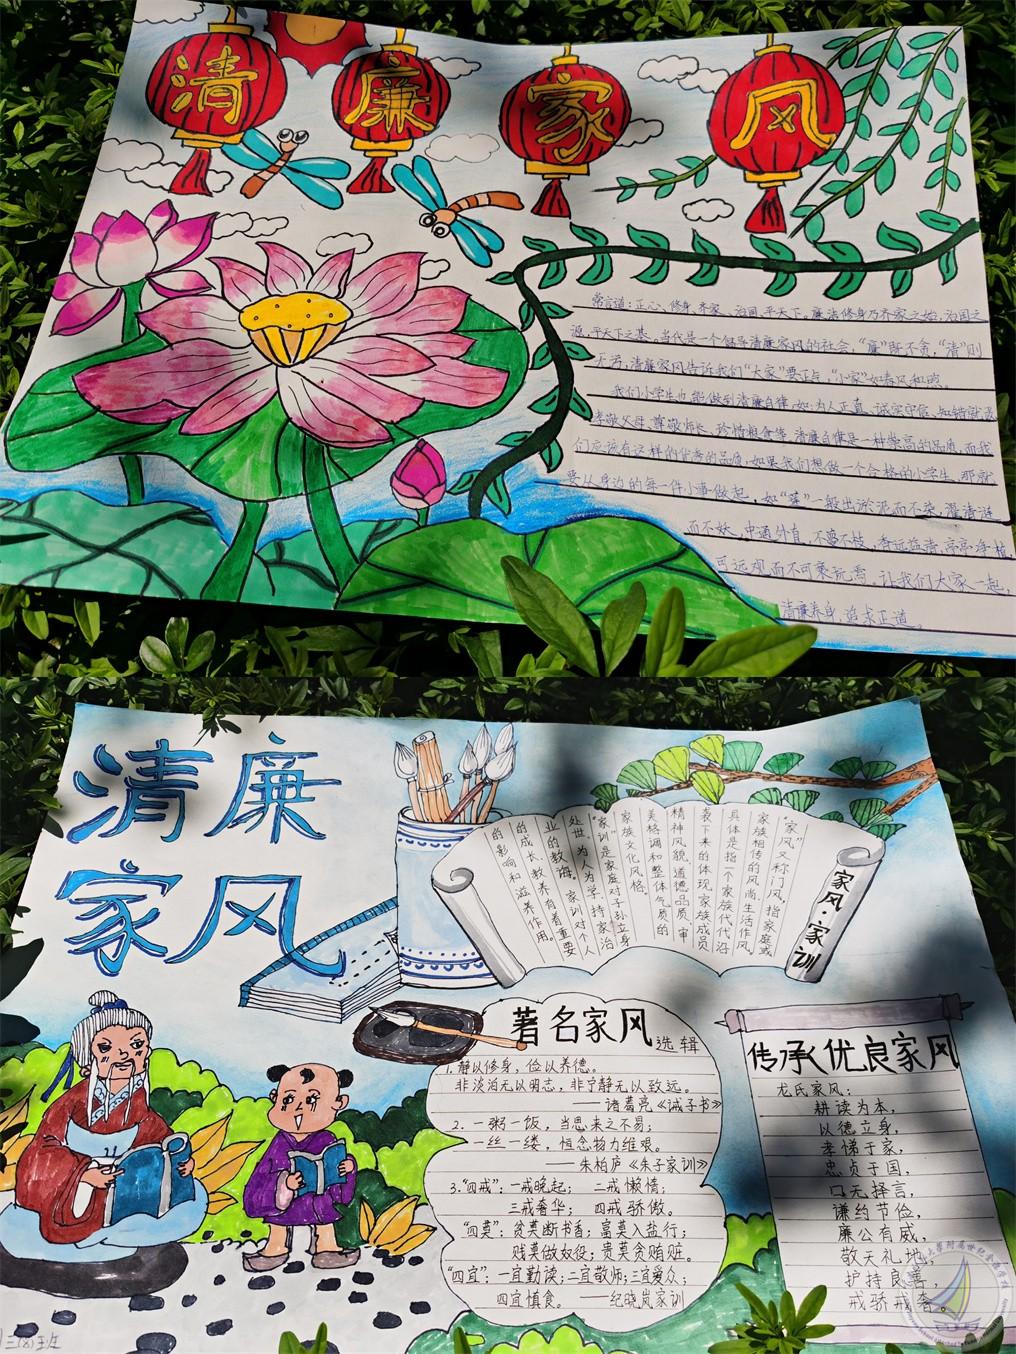 清廉家风
常言道：正心、修身、齐家、治国、平天下。廉洁修身乃齐家之始，治国之
源，平天下之基。当代是一个倡导清廉家风的社会，“廉”既不贪，“清”则
不污，清廉家风告诉我们“大家”要正气，“小家”如春风和煦。
我们小学生也能做到清廉自律，如：为人正直、诚实守信、知错就改
孝敬父母、尊敬师长、珍惜粮食等。清廉自律是一种崇高的品质，而我
们应该有这样的优秀的品质，如果我们想做一个合格的小学生，那就
要从身边的每一件小事做起，如“莲”一般出淤泥而不染，濯清涟
而不妖，中通外直，不蔓不枝，香远益清，亭亭净植，
可远观而不可亵玩焉，让我们大家一起，
清廉养身，追求正道。
清廉
家风
家风·家训
“家风”又称门风，指家庭或
家族相传的风尚生活作风。
具体是指一个家族代代沿
袭下来的体现家族成员
精神风貌、道德品质、审
美格调和整体气质的
家族文化风格。
“家训”是家庭对子孙立身
处世、为人为学、持家治
业的教诲。家训对个人
的成长、教养有着重要
的影响和滋养作用。
著名家风选辑
1.静以修身，俭以养德。
非淡泊无以明志，非宁静无以致远。
——诸葛亮《诫子书》
2.一粥一饭，当思来之不易；
一丝一缕，恒念物力维艰。
——朱柏庐《朱子家训》
3.“四戒”：一戒晚起；二戒懒惰；
三戒奢华；四戒骄傲。
“四莫”：贫莫断书香；富莫入盐行；
贱莫做奴役；贵莫贪贿赃。
“四宜”：一宜勤读；二宜敬师；三宜爱众；
四宜慎食。——纪晓岚家训
传承优良家风
龙氏家风：
耕读为本，
以德立身，
孝悌于家，
忠贞于国，
口无择言，
谦约节俭，
廉公有威，
敬天礼地，
护持良善，
戒骄戒奢。
三(8)班